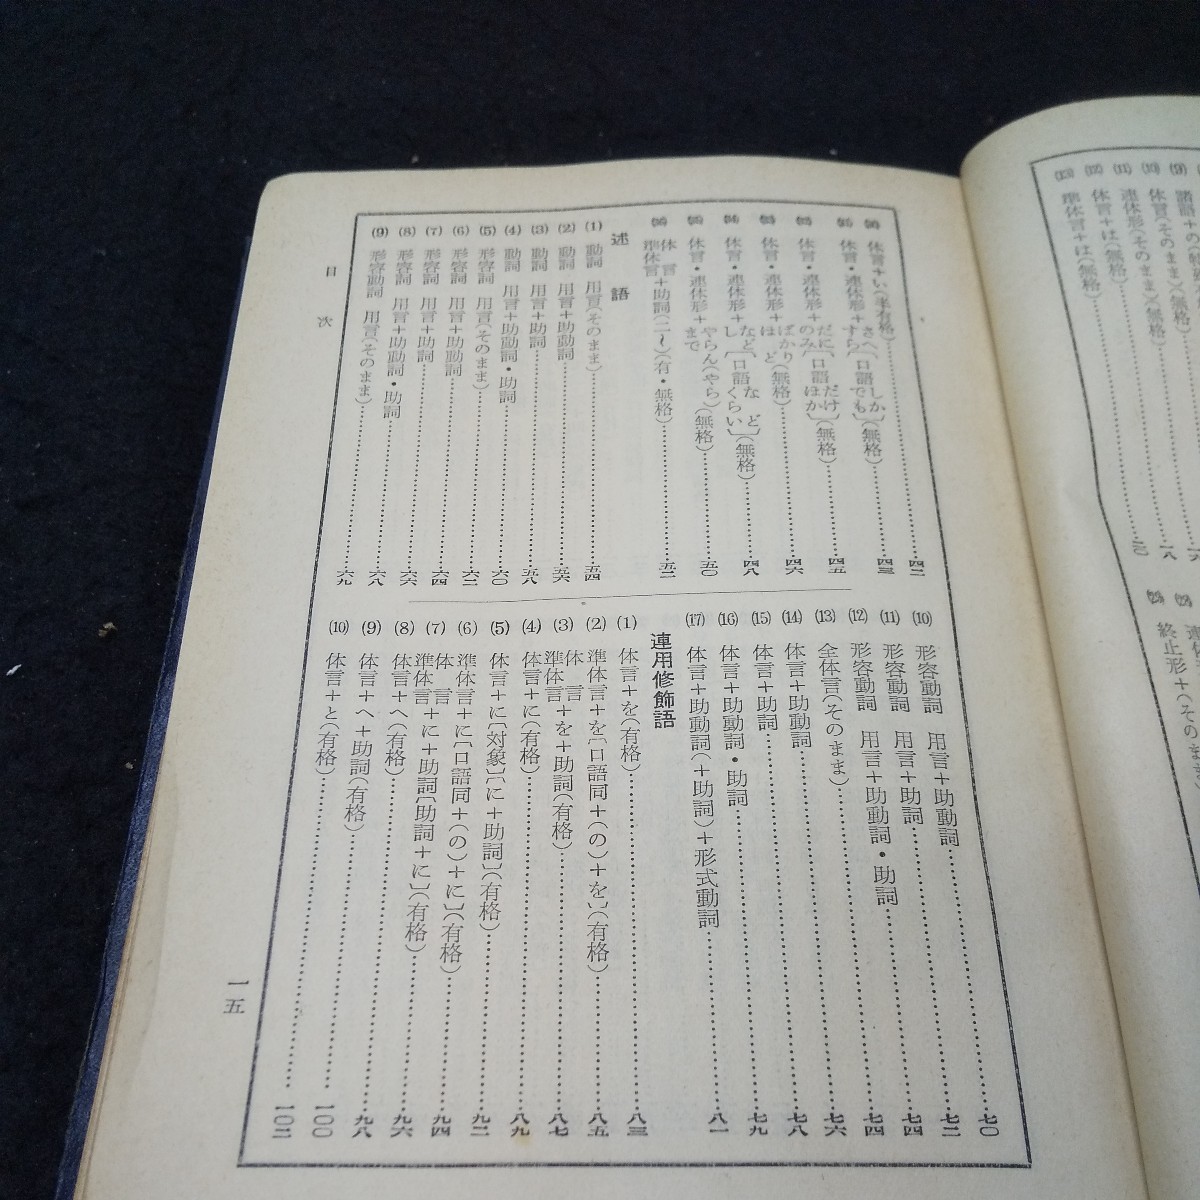 諸語+の
体言(そのまま)(無格)
(11) 連体形(そのまま)(無格)
(12) 体言+は(無格)
(13) 準体言+は(無格)
終止形+(そのま
体言+い(半有格)……四二
体言・連体形+さへ すら[口語 しか でも](無格)……四三
体言・連体形+だに のみ[口語 だけ ほか](無格)……四五
体言・連体形+ばかり ほど(無格)……四六
体言・連体形+など し[口語 など くらい](無格)……四八
体言・連体形+やらん(やら) まで(無格)……五〇
体言 準体言+助詞(二〜)(有・無格)……五二
述語
(1) 動詞 用言(そのまま)……五四
(2) 動詞 用言+助動詞……五六
(3) 動詞 用言+助詞……五八
(4) 動詞 用言+助動詞・助詞……六〇
(5) 形容詞 用言(そのまま)……六二
(6) 形容詞 用言+助動詞……六四
(7) 形容詞 用言+助詞……六六
(8) 形容詞 用言+助動詞・助詞……六八
(9) 形容動詞 用言(そのまま)……六九
(10) 形容動詞 用言+助動詞……七〇
(11) 形容動詞 用言+助詞……七二
(12) 形容動詞 用言+助動詞・助詞……七四
(13) 全体言(そのまま)……七四
(14) 体言+助動詞……七六
(15) 体言+助詞……七八
(16) 体言+助動詞・助詞……七九
(17) 体言+助動詞(+助詞)+形式動詞……八一
連用修飾語
(1) 体言+を(有格)……八三
(2) 準体言+を[口語同+(の)+を](有格)……八五
(3) 体言 準体言+を+助詞(有格)……八七
(4) 体言+に(有格)……八九
(5) 体言+に[対象](に+助詞)(有格)……九二
(6) 準体言+に[口語同+(の)+に](有格)……九四
(7) 体言 準体言+に+助詞[助詞+に](有格)……九六
(8) 体言+へ(有格)……九八
(9) 体言+へ+助詞(有格)……一〇〇
(10) 体言+と(有格)……一〇二
目次
一五